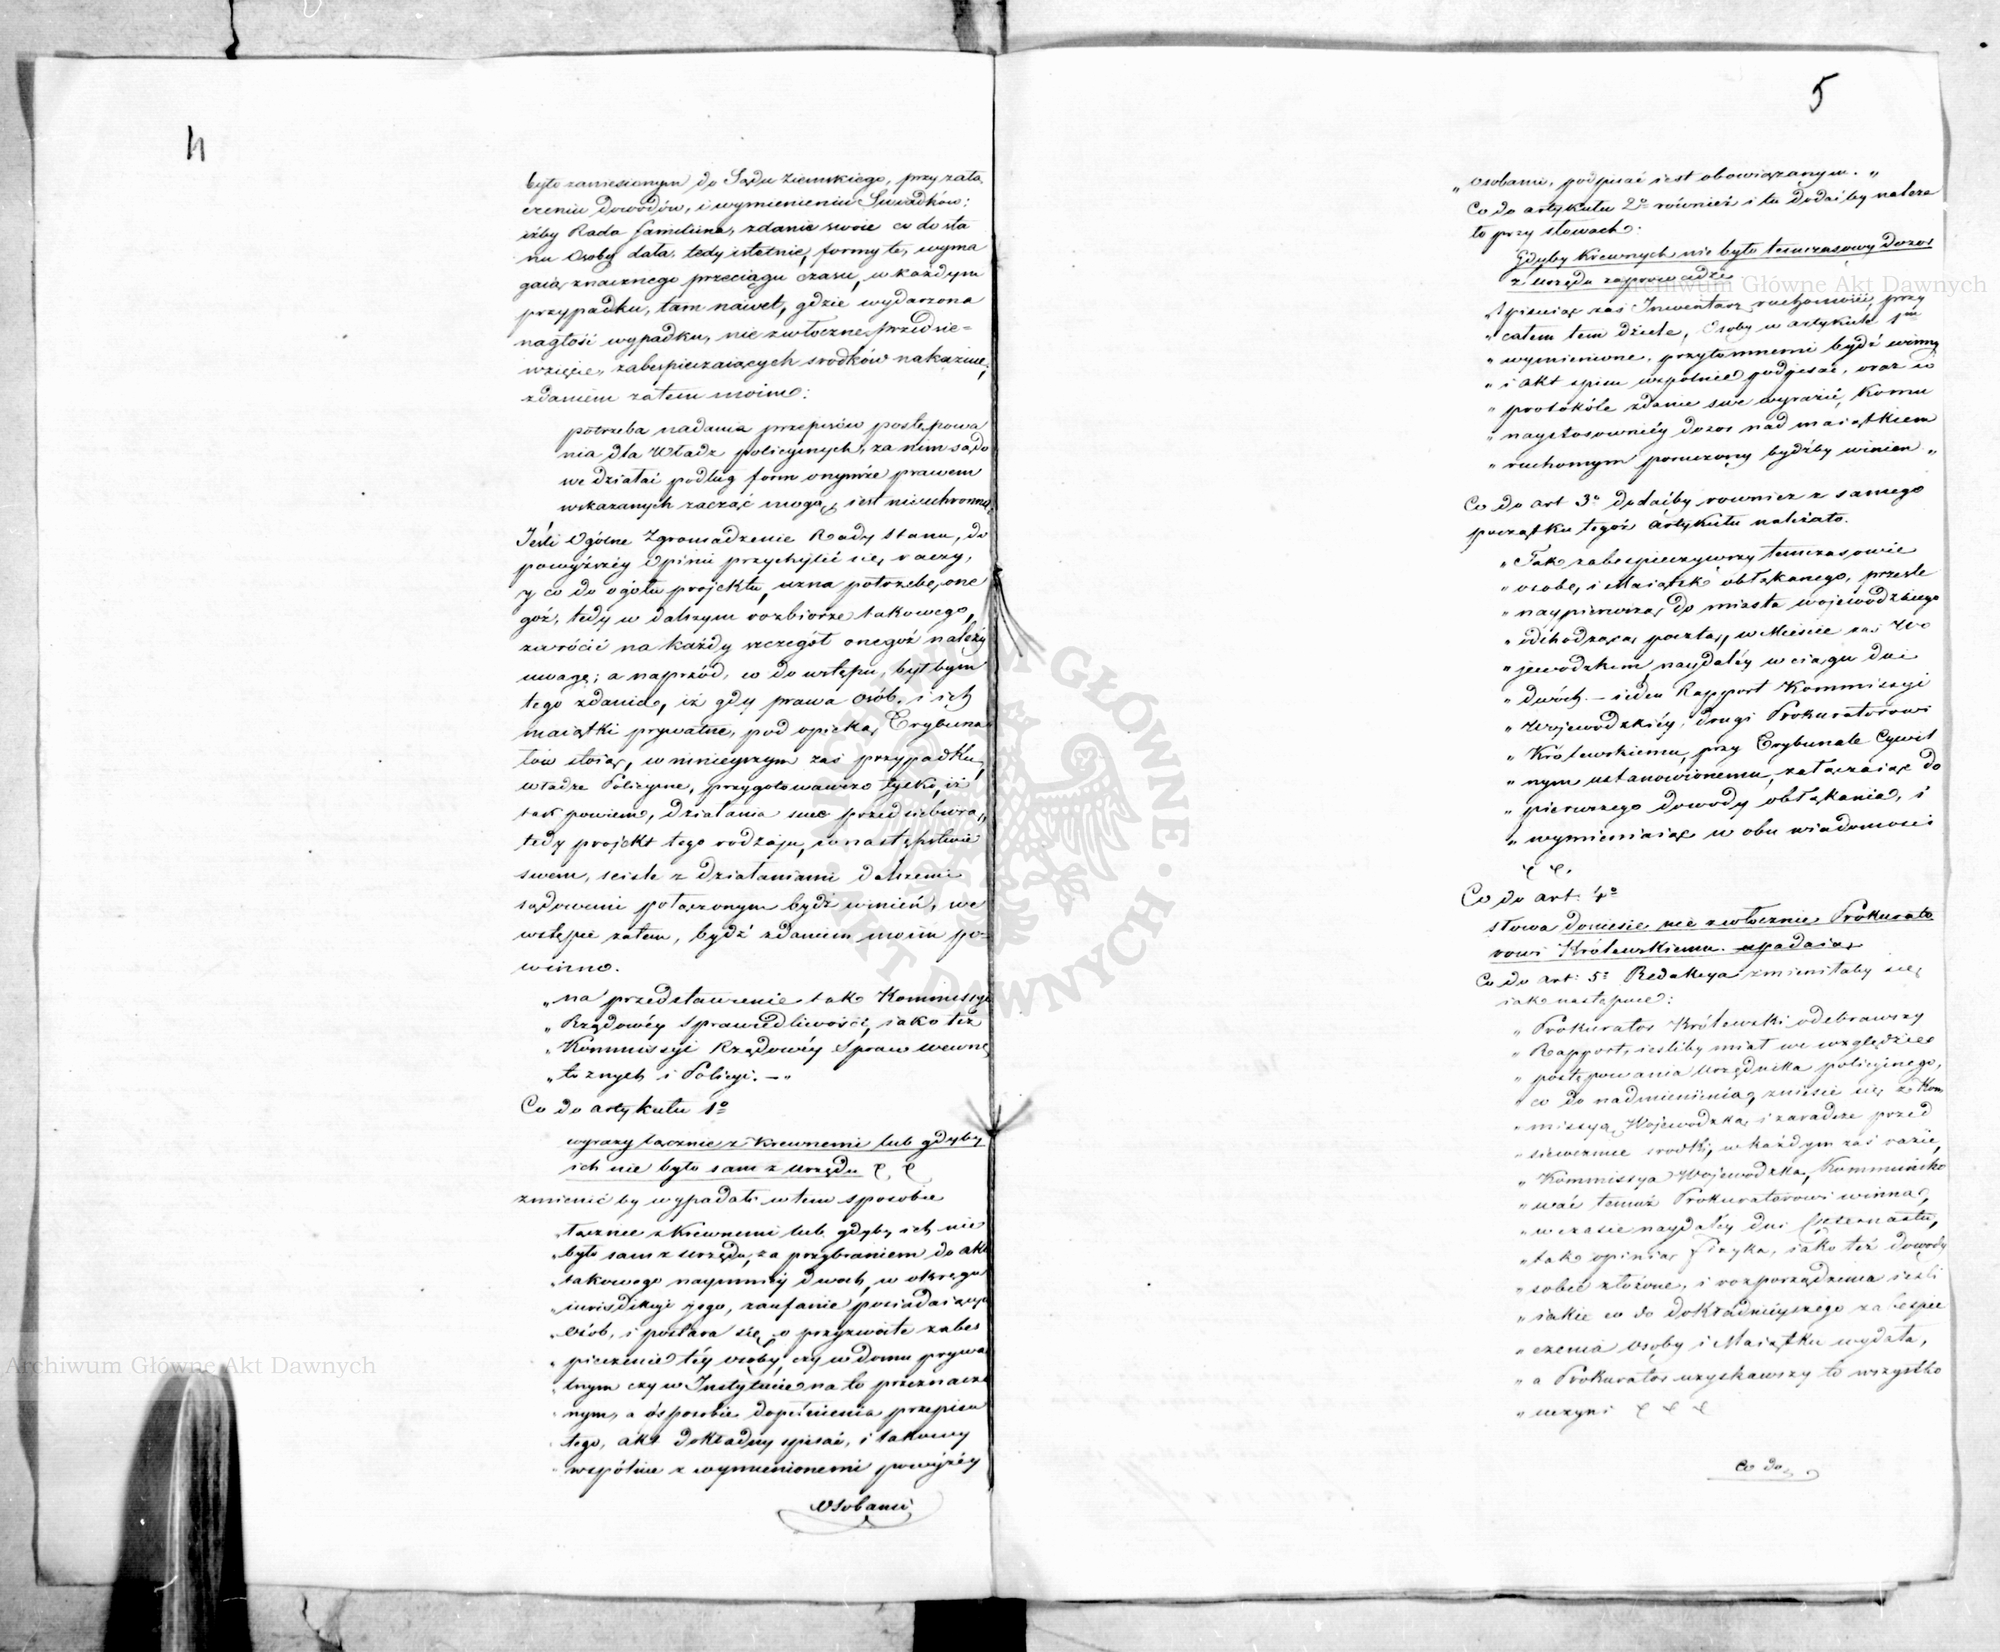 4
było zaniesionym do Sądu Ziemskiego, przy zała
czeniu dowodów, i wymienieniu Swiadków;
iżby Rada familijna, zdanie swoie co do sta
nu Osoby dała, tedy istotnie, formy te, wyma
gaią znacznego przeciągu czasu, w każdym
przypadku, tam nawet, gdzie wydarzona
nagłość wypadku, nie zwłoczne przedsie=
wzięcie, zabespieczaiących srodków nakazuie,
zdaniem zatem moim:
potrzeba nadania przepisów postępowa
nia dla Władz policyinych, za nim sądo
we działać podług form onymże prawem
wskazanych zacząć mogą, iest nieuchronną.
Jeśli Ogólne Zgromadzenie Rady Stanu, do
powyższey Opinii przychylić się raczy,
y co do ogółu projektu, uzna potrzebę one
goż, tedy w dalszym rozbiorze takowego,
zwrócić na każdy szczegół onegoż należy
uwagę; a naprzód, co do wstępu, byłbym
tego zdania, iż gdy prawa osób, i ich
maiątki prywatne, pod opieką Trybuna
łów stoią, w ninieyszym zaś przypadku,
władze Policyine, przygotowawszo tylko, iż
tak powiem, działania swe przedsiebiorą,
tedy projekt tego rodzaju, w następstwie
swem, sciśle z działaniami dalszemi
sądowemi połączonym bydź winien, we
wstępie zatem, bydź zdaniem moim po=
winno.
„na przedstawienie tak Kommissyi
„Rządowéy Sprawiedliwości, iako też
„Kommissyi Rządowéy Spraw wewnę
„trznych i Policyi. —"
Co do artykułu 1º
wyrazy łącznie z krewnemi lub gdyby
ich nie było sam z urzędu
zmienić by wypadało w tem sposobie
„łącznie z krewnemi lub gdyby ich nie
„było sam z urzędu, za przybraniem do aktu
„takowego naymniéy dwoch, w okręgu
„iurisdikcyi iego, zaufanie posiadaiących
„Osób, i postara się, o przyzwoite zabes
„pieczenie téy osoby, czy w domu prywa
„tnym czy w Instytucie na to przeznaczo
„nym, a o sposobie dopełnienia przepisu
„tego, akt dokładny spisać, i takowy
„wspólnie z wymienionemi powyżéy
Osobami
5
„osobami, podpisać iest obowiązanym. „
Co do artykułu 2º również i tu dodać by należa
ło przy słowach:
Gdyby Krewnych nie było tymczasowy dozór
z urzędu zaprowadzi
„Spisuiąc zaś Inwentarz ruchomości, przy
„całem tem dziele, Osoby w artykule 1m
„wymienione, przytomnemi bydź winny
„i akt spisu wspólnie podpisać, oraz w
„protokóle zdanie swe wyrazić, komu
„naystosowniéy dozor nad maiątkiem
„ruchomym poruczony bydźby winien „
Co do art 3º dodaćby rownież z samego
początku tegoż Artykułu należało.
„Tak zabespieczywszy tymczasowie
„osobę, i Maiątek obłąkanego, prześle
„naypierwszą do miasta wojewódzkiego
„odchodzącą pocztą, w Mieście zaś Wo
„jewódzkim naydaléy w ciągu dni
„dwóch. — ieden Rapport Kommissyi
„Wojewódzkiéy, drugi Prokuratorowi
„Królewskiemu, przy Trybunale Cywil
„nym ustanowionemu, załączaiąc do
„pierwszego dowody obłąkania, i
„wymieniaiąc w obu wiadomości
Co do art: 4º
słowa doniesie nie zwłocznie Prokurato
rowi Królewskiemu. upadaią
Co do art: 5º Redakcya zmieniłaby się
iak następuie:
„Prokurator Królewski odebrawszy
„Rapport, ieśliby miał we względzie
„postępowania urzędnika policyinego,
„co do nadmienienia, zniesie się z Kom
„missyą Wojewódzką i zaradcze przed
„sieweźmie srodki, w każdym zaś razie,
„Kommissya Wojewódzka, Kommuniko
„wać temuż Prokuratorowi winna,
„w czasie naydaléy dni Czternastu,
„tak opinią Fizyka, iako też dowody
„sobie złożone, i rozporządzenia ieśli
„iakie co do dokładnieyszego zabespie
„czenia Osoby i Maiątku wydała,
„a Prokurator uzyskawszy to wszystko
„uczyni
Co do
Archiwum Główne Akt Dawnych
Archiwum Główne Akt Dawnych
ARCHIWUM GŁÓWNE · AKT DAWNYCH ·